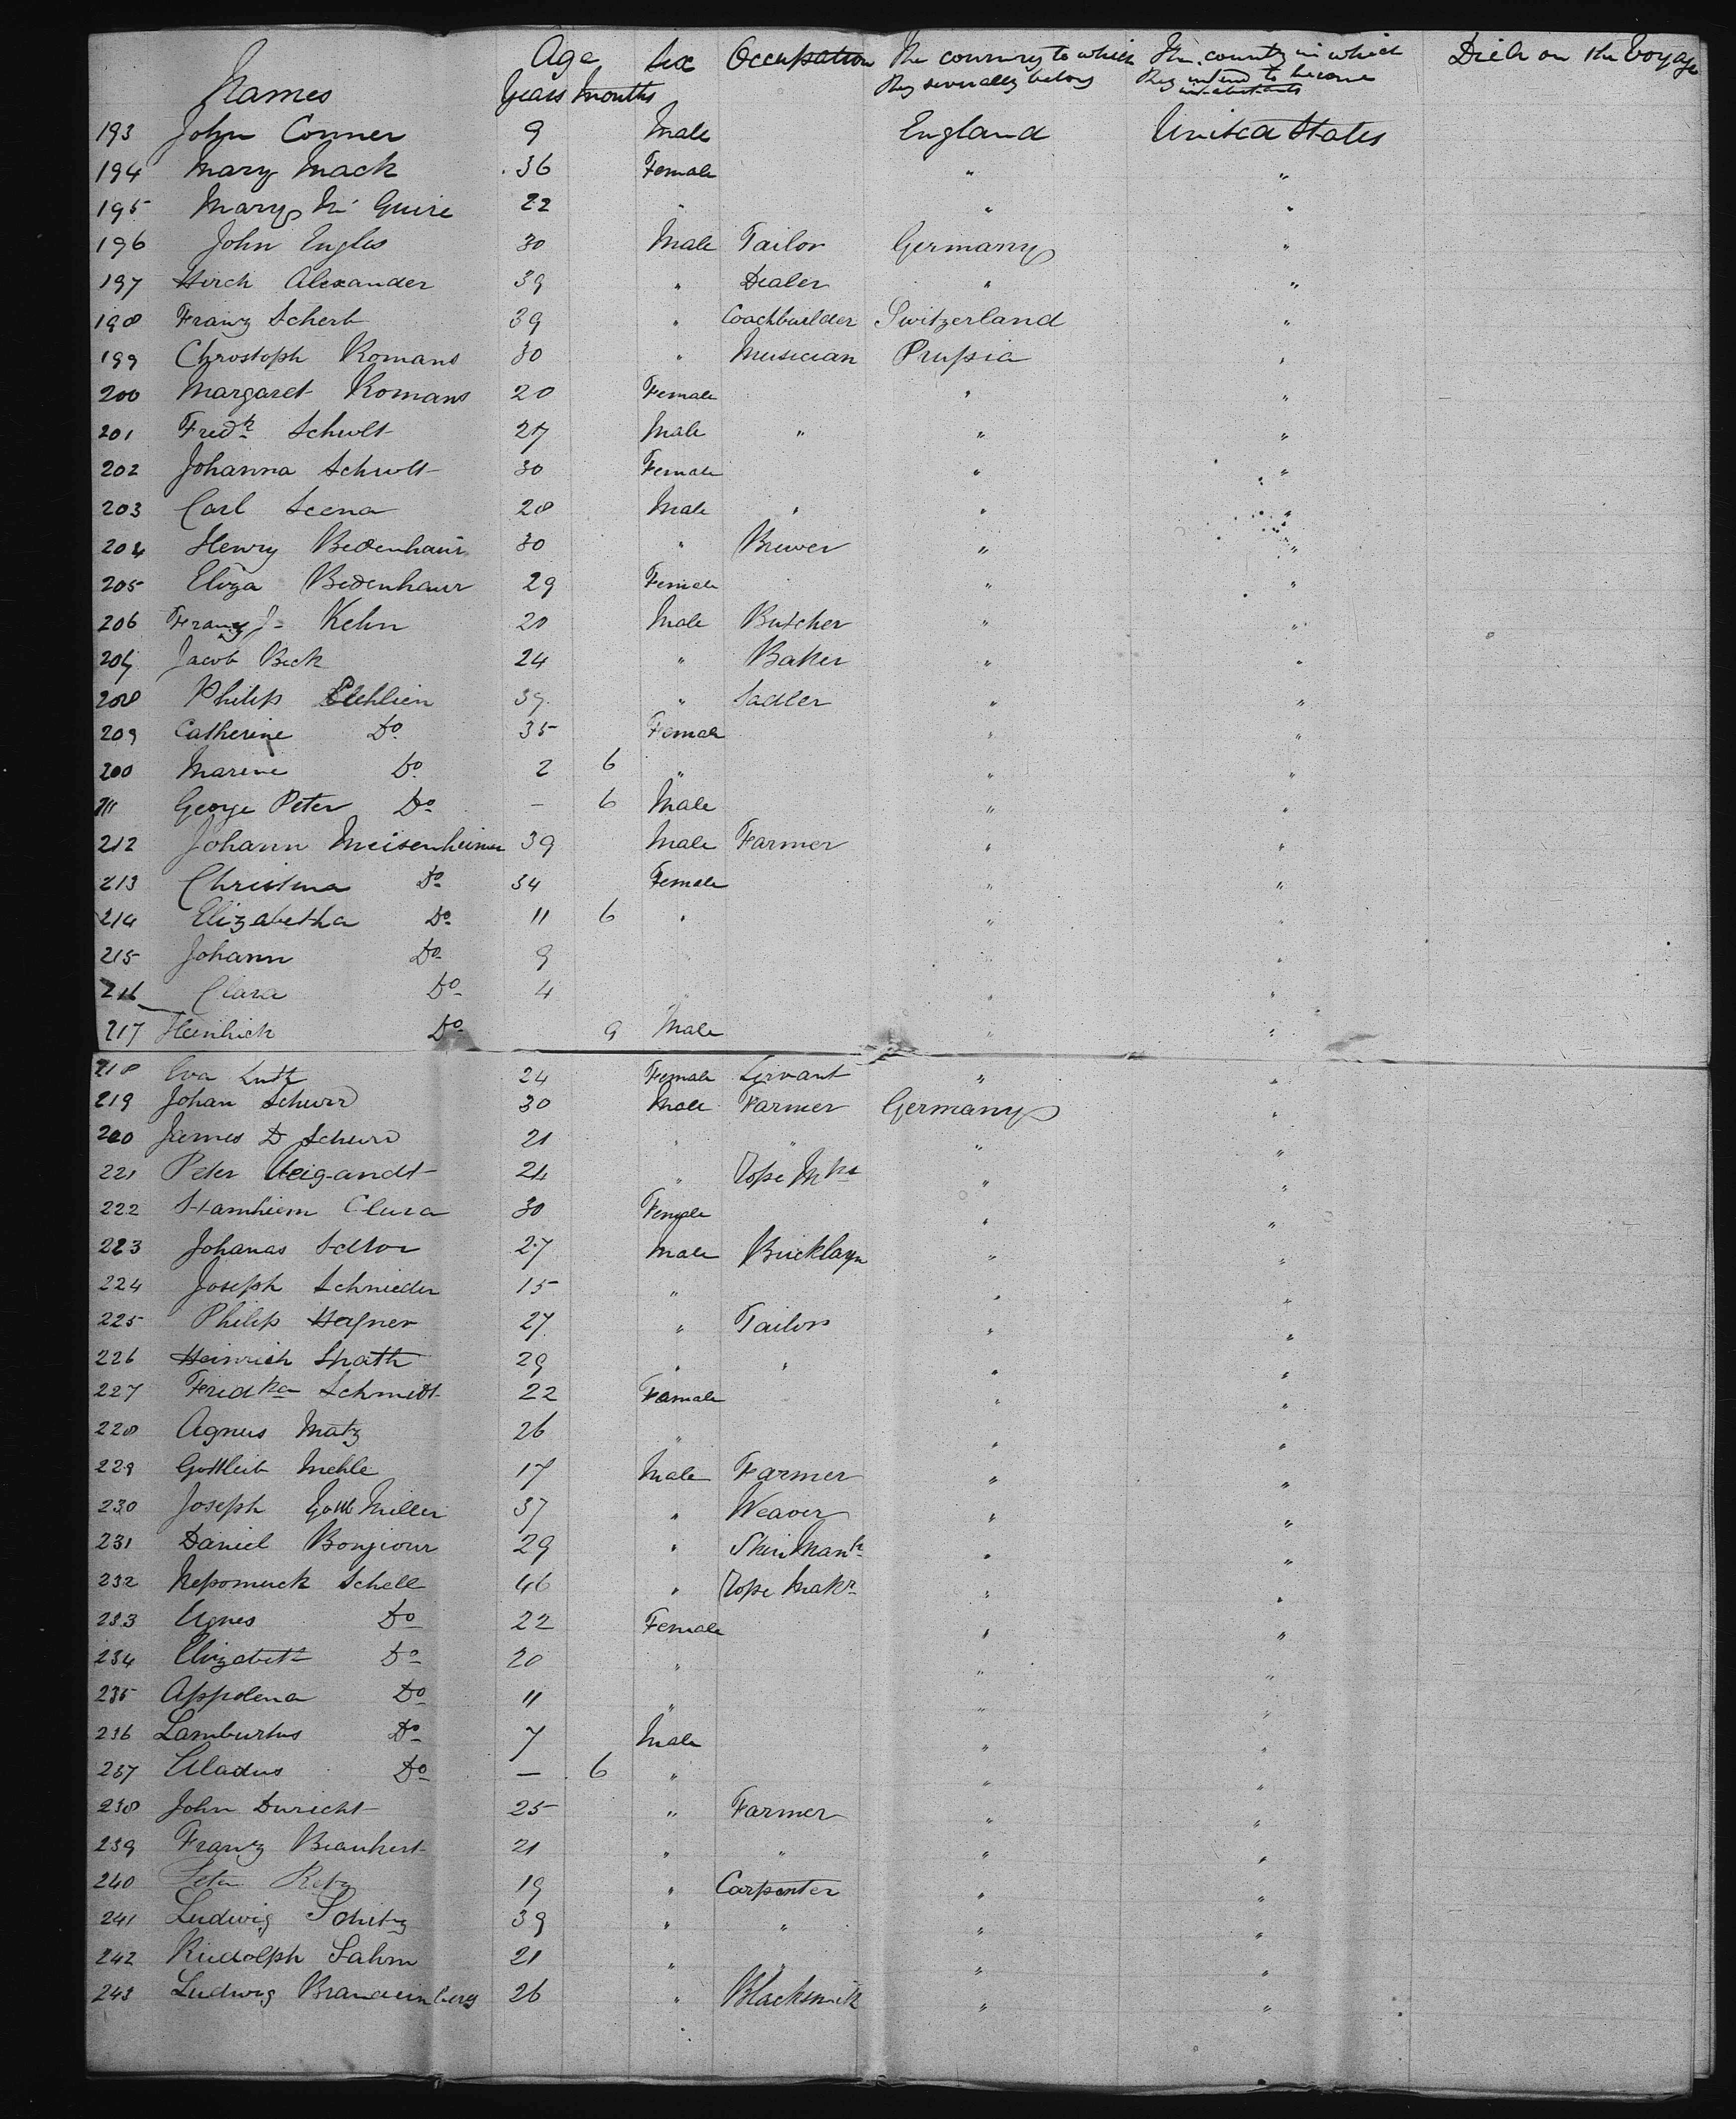 Names Age Years Months Sex Occupation The country to which they severally belong The country in which they intend to become inhabitants Died on the Voyage
193 John Conner 9 Male England United States
194 Mary Mack 36 Female " "
195 Mary Mc Guire 22 " " "
196 John Engles 30 Male Tailor Germany "
197 Hirch Alexander 39 " Dealer " "
198 Franz Scherb 39 " Coachbuilder Switzerland "
199 Christoph Romans 30 " Musician Prussia "
200 Margaret Romans 20 Female " "
201 Fredk Schult 27 Male " " "
202 Johanna Schult 30 Female " "
203 Carl Seena 28 Male " " "
204 Henry Bedenhaur 30 " Brewer " "
205 Eliza Bedenhaur 29 Female " "
206 Franz J Kehn 20 Male Butcher " "
207 Jacob Beck 24 " Baker " "
208 Philip 39 " Sadler " "
209 Catherine Do 35 Female " "
200 Marine Do 2 6 " " "
211 George Peter Do - 6 Male " "
212 Johann Meisenheimer 39 Male Farmer " "
213 Christina Do 34 Female " "
214 Elizabetha Do 11 6 " " "
215 Johann Do 9 " "
216 Clara Do 4 " "
217 Heinhich Do 9 Male " "
218 Eva Lutz 24 Female Servant " "
219 Johan Schurr 30 Male Farmer Germany "
220 James D Schurr 21 " " " "
221 Peter Weigandt 24 " Rope Mkr " "
222 Stamhiem Clara 30 Female " "
223 Johanas Seltor 27 Male Bricklayr " "
224 Joseph Schnieder 15 " " "
225 Philip Hafner 27 " Tailor " "
226 Heinrich Spath 29 " " " "
227 Fridka Schmidt 22 Female " "
228 Agnus Matz 26 " " "
229 Gottleib Mehle 17 Male Farmer " "
230 Joseph Gottl Miller 37 " Weaver " "
231 Daniel Bonjour 29 " " "
232 Nepomuck Schell 46 " Rope Makr " "
233 Agnes Do 22 Female " "
234 Elizabeth Do 20 " " "
235 Appolena Do 11 " " "
236 Lamburtus Do 7 Male " "
237 Do - 6 " " "
238 John Duricht 25 " Farmer " "
239 Franz 21 " " " "
240 19 " Carpenter " "
241 Ludwig Schitz 39 " " " "
242 Rudolph Sahm 21 " " " "
243 Ludwig Brandenberg 26 " Blacksmith " "